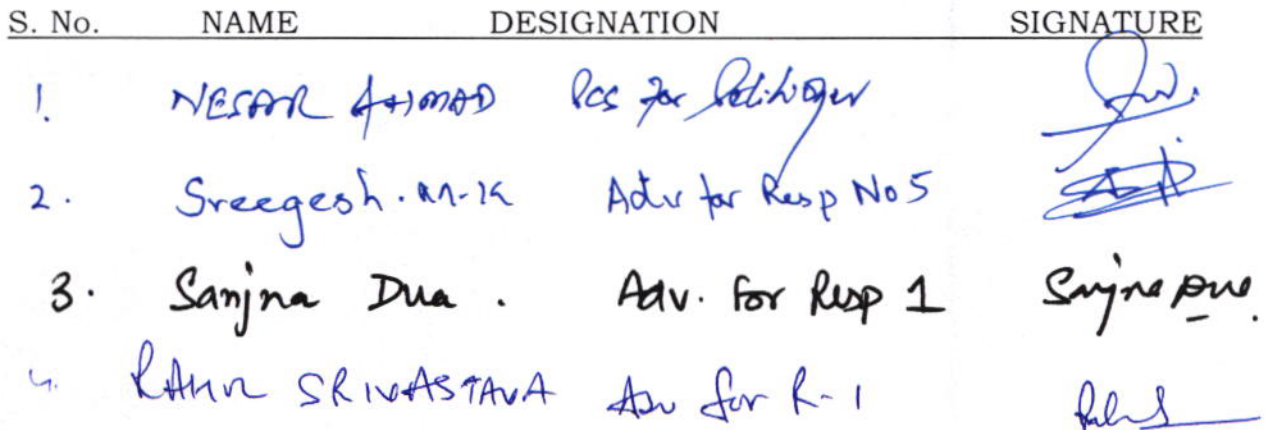 S. No. NAME DESIGNATION SIGNATURE
1. NESAR AHMAD PCS for Petitioner
2. Sreegesh. Adv for Resp No 5
3. Sanjna Dua. Adv. For Resp 1 Sanjna Dua.
4. RAHUL SRIVASTAVA Adv for R-1